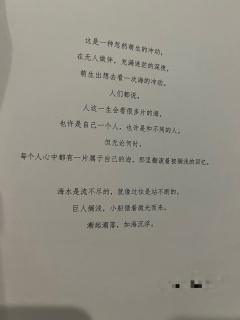 这是一种忽然萌生的冲动，
在无人做伴，充满迷茫的深夜，
萌生出想去看一次海的冲动，
人们都说，
人这一生会看很多片的海，
也许是自己一个人，也许是和不同的人，
但无论何时，
每个人心中都有一片属于自己的海，那里翻滚着被搁浅的回忆。
海水是流不尽的，就像过往是站不断的。
巨人搁浅，小船循着微光而来。
潮起潮落，如海沉浮。